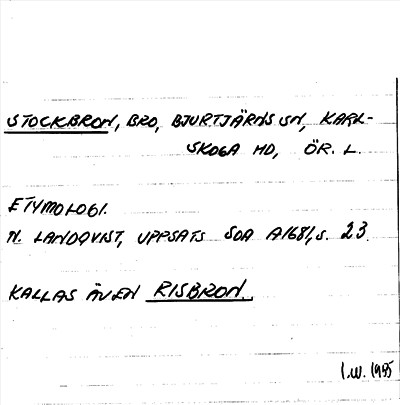 STOCKBRON, BRO, BJURTJÄRNS SN, KARL-
SKOGA HD, ÖR. L.
ETYMOLOGI.
N. LANDQVIST, UPPSATS SOA A1681, s. 23.
KALLAS ÄVEN RISBRON.
I.W. 1985